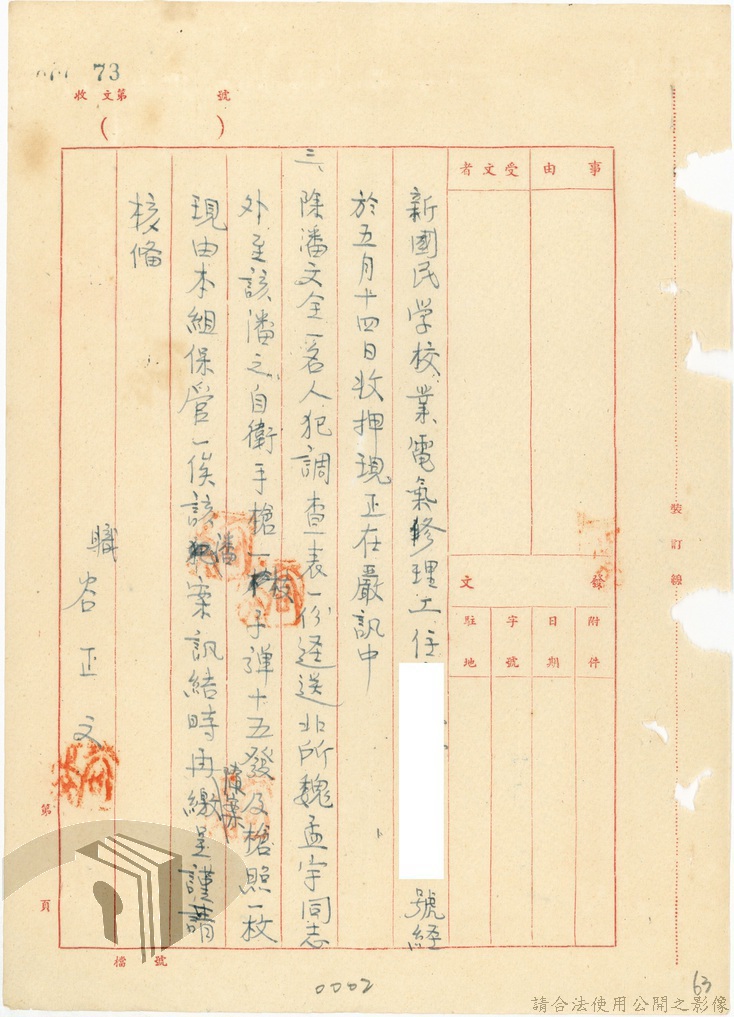 73
收文第 號
( )
事由
受文者
發文
附件
日期
字號
駐地
新國民學校業電氣修理工住
號經
於五月十四日收押現正在嚴訊中
三、除潘文全一名人犯調查表一份逕送北所魏孟宇同志
外至該潘之自衛手槍一枝子彈十五發及槍照一枚
現由本組保管一俟該潘案訊結時再繳呈謹請
隨案
核備
職谷正文
裝訂線
第 頁
檔號
0002
63
請合法使用公開之影像